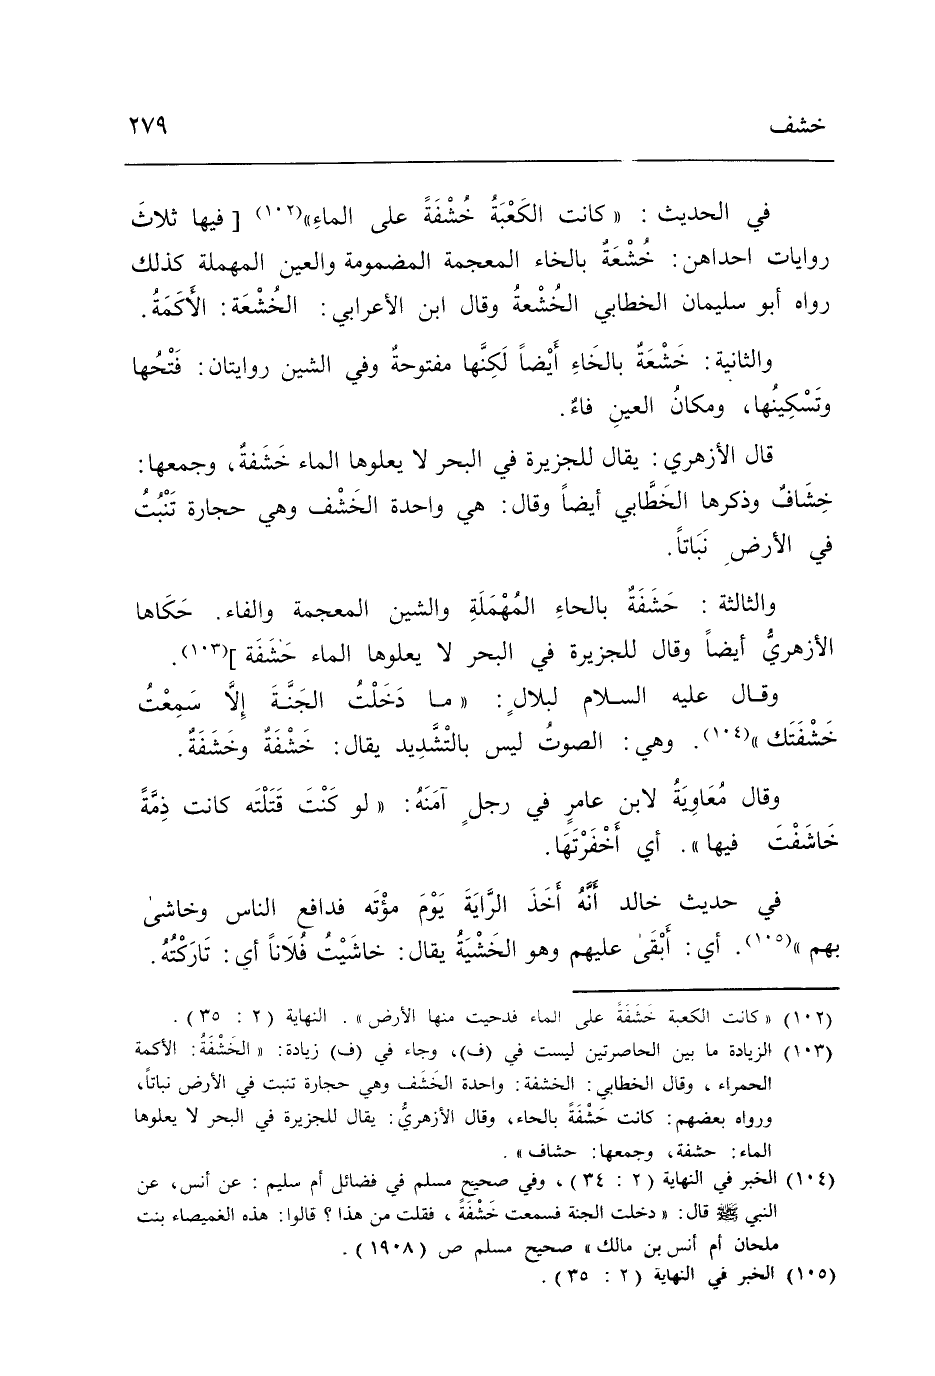 خشف ٢٧٩
في الحديث : « كانت الكَعْبَةُ خُشْفَةً على الماءِ»(١٠٢) [ فيها ثلاثَ
روايات احداهن: خُشْعَةٌ بالخاء المعجمة المضمومة والعين المهملة كذلك
رواه أبو سليمان الخطابي الخُشْعةُ وقال ابن الأعرابي: الخُشْعَة: الأَكَمَةُ.
والثانية: خَشْعَةٌ بالخَاءِ أَيْضاً لَكِنَّها مفتوحةٌ وفي الشين روايتان: فَتْحُها
وتَسْكِينُها، ومكانُ العينِ فاءٌ.
قال الأزهري: يقال للجزيرة في البحر لا يعلوها الماء خَشَفةٌ، وجمعها:
خِشَافٌ وذكرها الخَطَّابي أيضاً وقال: هي واحدة الخَشْف وهي حجارة تَنْبُتُ
في الأرضِ نَبَاتاً.
والثالثة : حَشَفَةٌ بالحاء المُهْمَلَةِ والشين المعجمة والفاء. حَكَاها
الأزهريُّ أيضاً وقال للجزيرة في البحر لا يعلوها الماء حَشَفَة ](١٠٣).
وقـال عليه السـلام لبلالٍ: « مـا دَخَلْتُ الجَنَّـةَ إِلَّا سَمِعْتُ
خَشْفَتَك »(١٠٤). وهي: الصوتُ ليس بالتْشَّدِيد يقال: خَشْفَةٌ وخَشَفَةٌ.
وقال مُعَاوِيَةُ لابن عامرٍ في رجلٍ آمَنَهُ: « لو كَنْتَ قَتَلْتَه كانت ذِمَّةً
خَاشَفْتَ فيها ». أي أَخْفَرْتَهَا.
في حديث خالد أَنَّهُ أَخَذَ الرَّايَةَ يَوْمَ مؤْتَه فدافع الناس وخاشىٰ
بهم »(١٠٥). أي: أَبْقَىٰ عليهم وهو الخَشْيَةُ يقال: خاشَيْتُ فُلَاناً أي: تَارَكْتُهُ.
(١٠٢) « كانت الكعبة خَشَفَةً على الماء فدحيت منها الأرض ». النهاية (٢ : ٣٥ ) .
(١٠٣) الزيادة ما بين الحاصرتين ليست في (ف)، وجاء في (ف) زيادة: « الخَشْفَةُ: الأكمة
الحمراء ، وقال الخطابي: الخشفة: واحدة الخَشَف وهي حجارة تنبت في الأرض نباتاً،
ورواه بعضهم: كانت حَشْفَةً بالحاء، وقال الأزهريُّ: يقال للجزيرة في البحر لا يعلوها
الماء: حشفة، وجمعها: حشاف » .
(١٠٤) الخبر في النهاية (٢ : ٣٤ )، وفي صحيح مسلم في فضائل أم سليم : عن أنس، عن
النبي ﷺ قال: « دخلت الجنة فسمعت خَشْفَةً ، فقلت من هذا ؟ قالوا: هذه الغميصاء بنت
ملحان أم أنس بن مالك » صحيح مسلم ص (١٩٠٨ ) .
(١٠٥) الخبر في النهاية (٢ : ٣٥ ) .